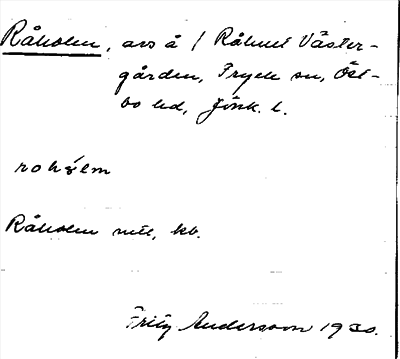 Råholm, avs å / Råhult Väster-
gården, Fryele sn, Öst-
bo hd, Jönk. l.
Råholm
Fritz Andersson 1930.